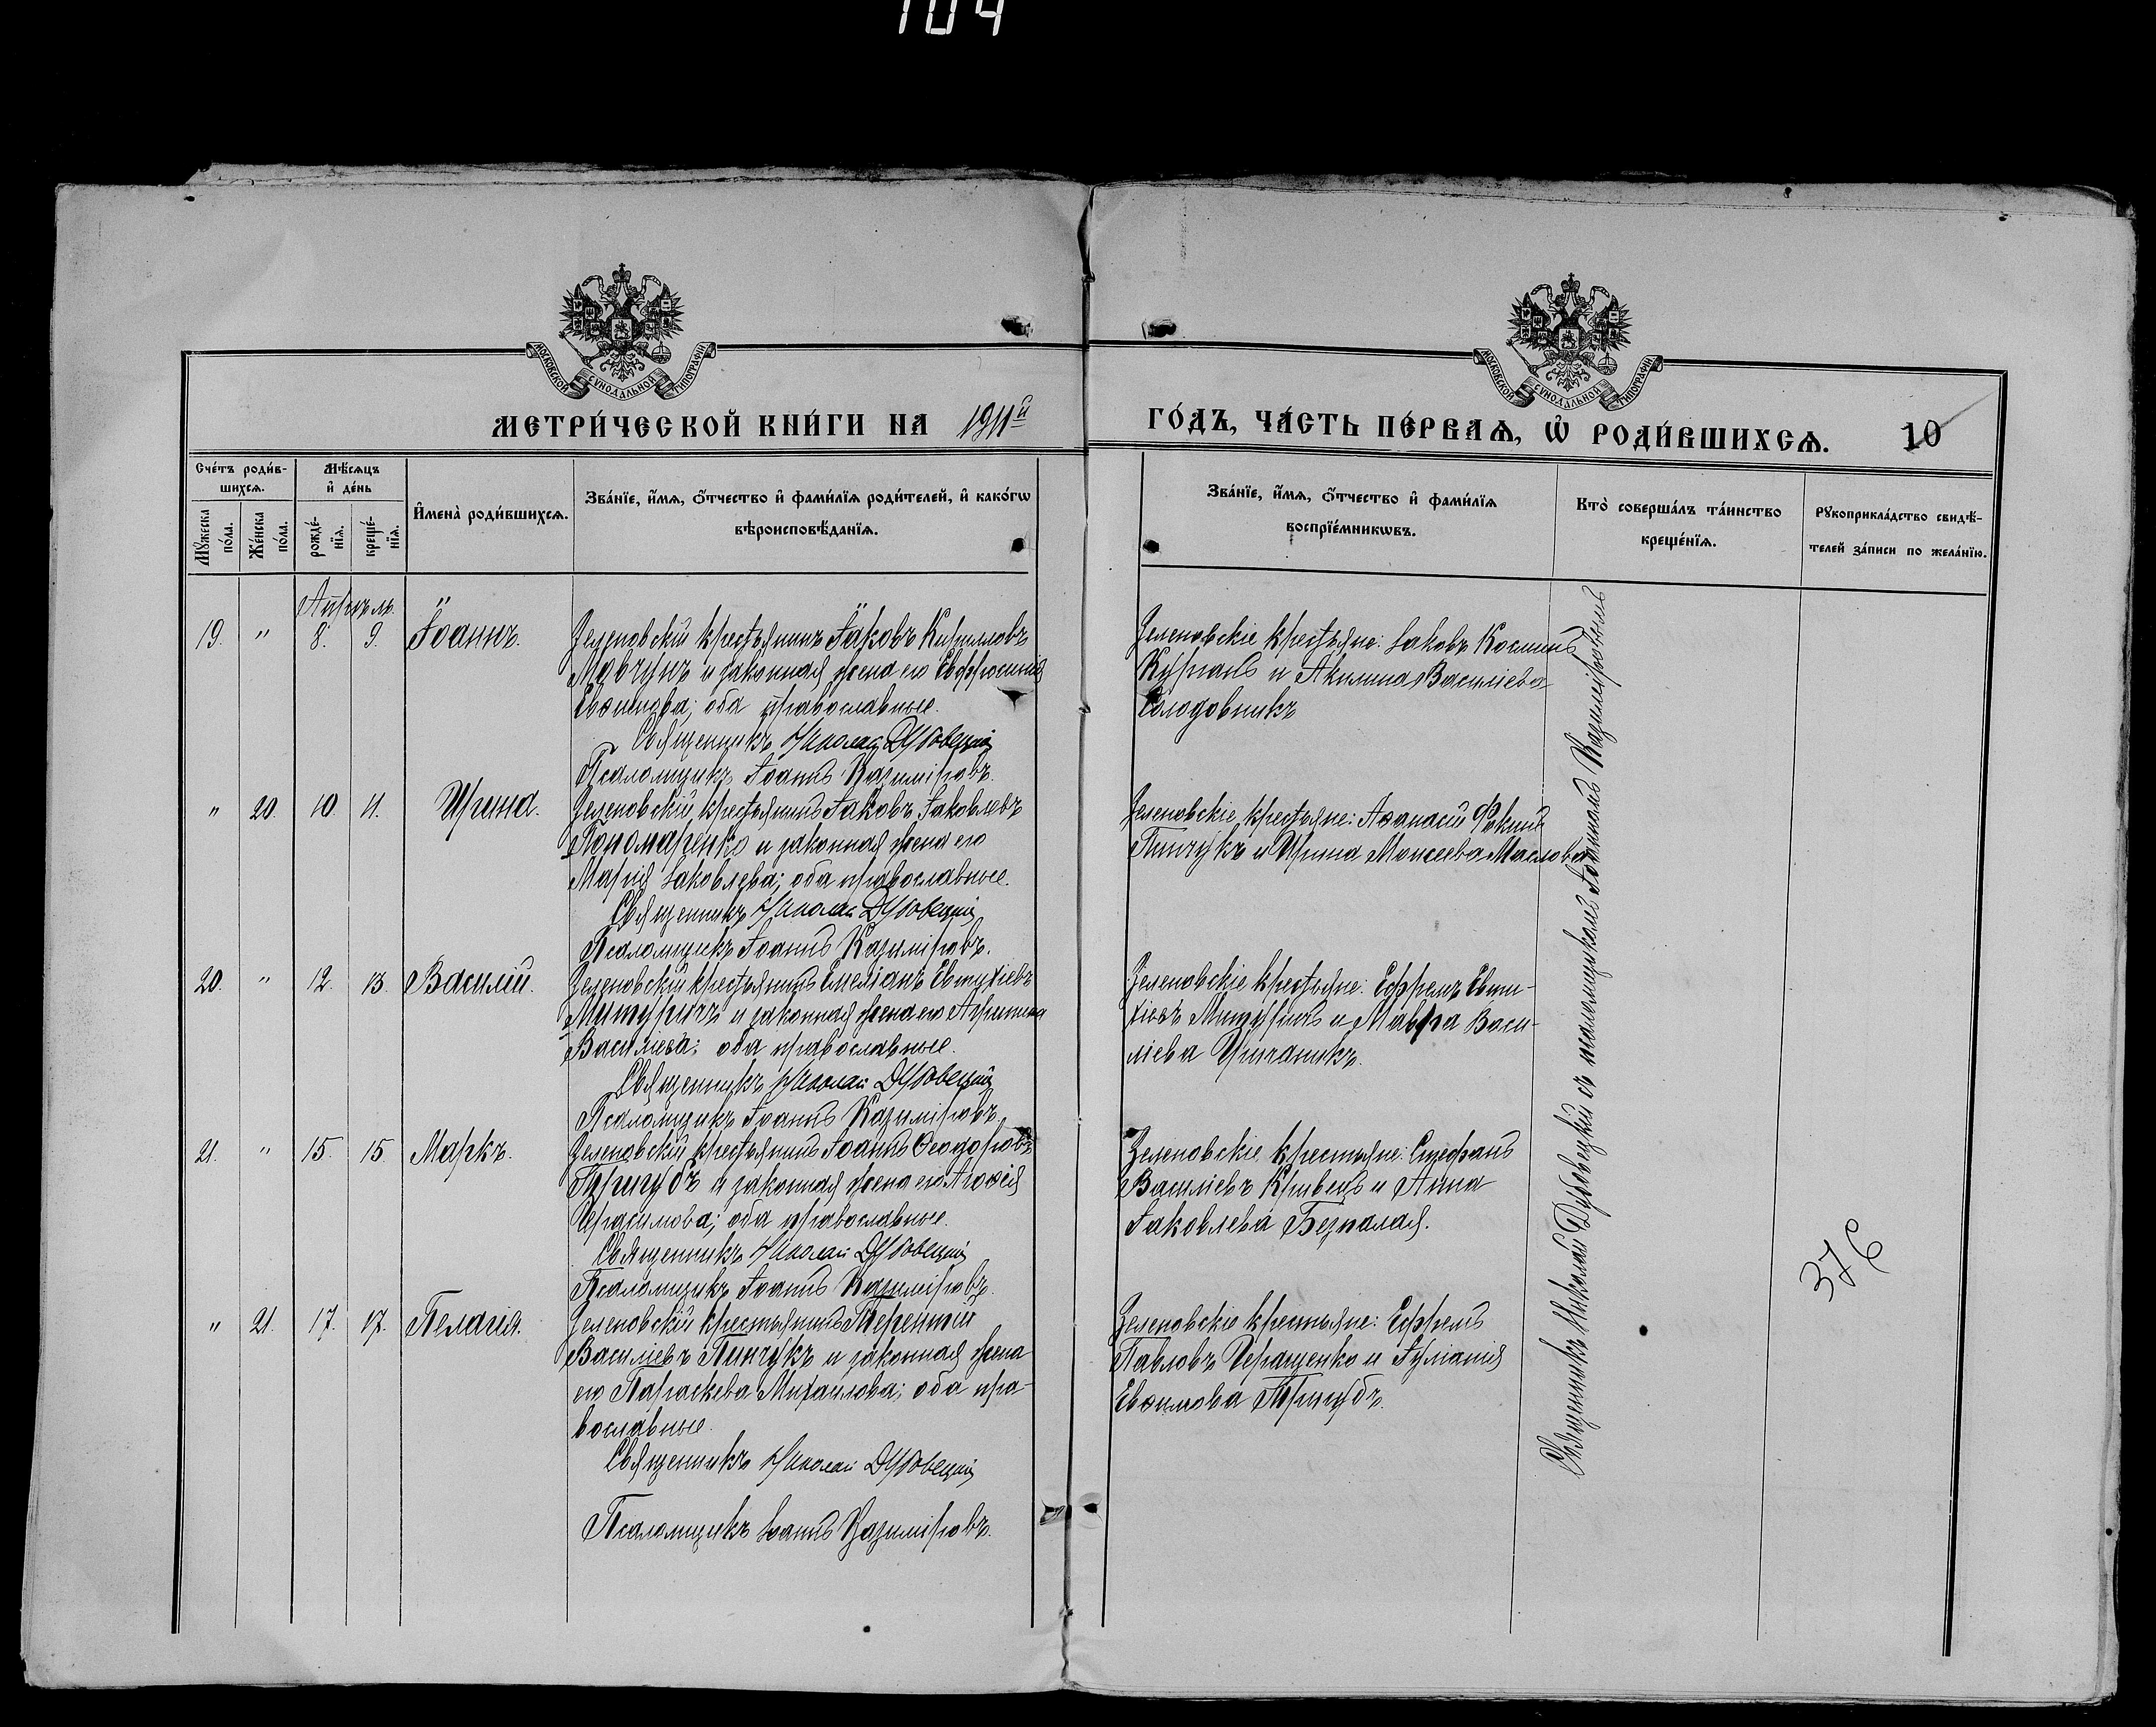 104
МОСКОВСКОЙ СУНОДАЛЬНОЙ ТИПОГРАФІИ
МОСКОВСКОЙ СУНОДАЛЬНОЙ ТИПОГРАФІИ
МЕТРИ́ЧЕСКОЙ КНИ́ГИ НА 1911й ГО́ДЪ, ЧА́СТЬ ПЕ́РВАѦ, Ѡ҆ РОДИ́ВШИХСѦ. 10
Сче́тъ роди́в-
шихсѧ.
Мꙋ́жеска по́ла.
Же́нска по́ла.
Мѣ́сѧцъ
и҆ де́нь
рожде́-
нїѧ.
креще́-
нїѧ.
И҆мена̀ роди́вшихсѧ.
Зва́нїе, и҆́мѧ, ѻ҆́тчество и҆ фами́лїѧ роди́телей, и҆ како́гѡ
вѣроисповѣ́данїѧ.
Зва́нїе, и҆́мѧ, ѻ҆́тчество и҆ фами́лїѧ
воспрїе́мникѡвъ.
Кто̀ соверша́лъ та́инство
креще́нїѧ.
Рꙋкоприкла́дство свидѣ́-
телей за́писи по жела́нїю.
Апрѣль.
19. " 8. 9. Іоаннъ.
Зеленовскій крестьянинъ Іаковъ Кирилловъ
Мовчунъ и законная жена его Евфросинія
Евѳимова; оба православные.
Священникъ Николай Дубовецкій
Псаломщикъ Іоаннъ Казиміровъ.
Зеленовскіе крестьяне: Іаковъ Косминъ
Курганъ и Акилина Василіева
Солодовникъ
" 20. 10. 11. Ирина.
Зеленовскій крестьянинъ Іаковъ Іаковлевъ
Пономаренко и законная жена его
Марія Іаковлева; оба православные.
Священникъ Николай Дубовецкій
Псаломщикъ Іоаннъ Казиміровъ.
Зеленовскіе крестьяне: Аѳанасій Фокинъ
Пинчукъ и Ирина Моисеева Маслова
20. " 12. 13. Василій.
Зеленовскій крестьянинъ Емеліанъ Евтихіевъ
и законная жена его
Василіева; оба православные.
Священникъ Николай Дубовецкій
Псаломщикъ Іоаннъ Казиміровъ.
Зеленовскіе крестьяне: Ефремъ Евти-
хіевъ и Мавра Васи-
ліева
21. " 15. 15. Маркъ.
Зеленовскій крестьянинъ Іоаннъ Ѳеодоровъ
Тригубъ и законная жена его Агаѳія
Герасимова; оба православные.
Священникъ Николай Дубовецкій
Псаломщикъ Іоаннъ Казиміровъ.
Зеленовскіе крестьяне: Стефанъ
Василіевъ Кривецъ и Анна
Іаковлева Безпалая.
" 21. 17. 17. Пелагія.
Зеленовскій крестьянинъ Терентій
Василіевъ Пинчукъ и законная жена
его Параскева Михаилова; оба пра-
вославные.
Священникъ Николай Дубовецкій
Псаломщикъ Іоаннъ Казиміровъ.
Зеленовскіе крестьяне: Ефремъ
Павловъ Геращенко и Іуліанія
Евѳимова Тригубъ.
Священникъ Николай Дубовецкій съ псаломщикомъ Іоанномъ Казиміровымъ
376